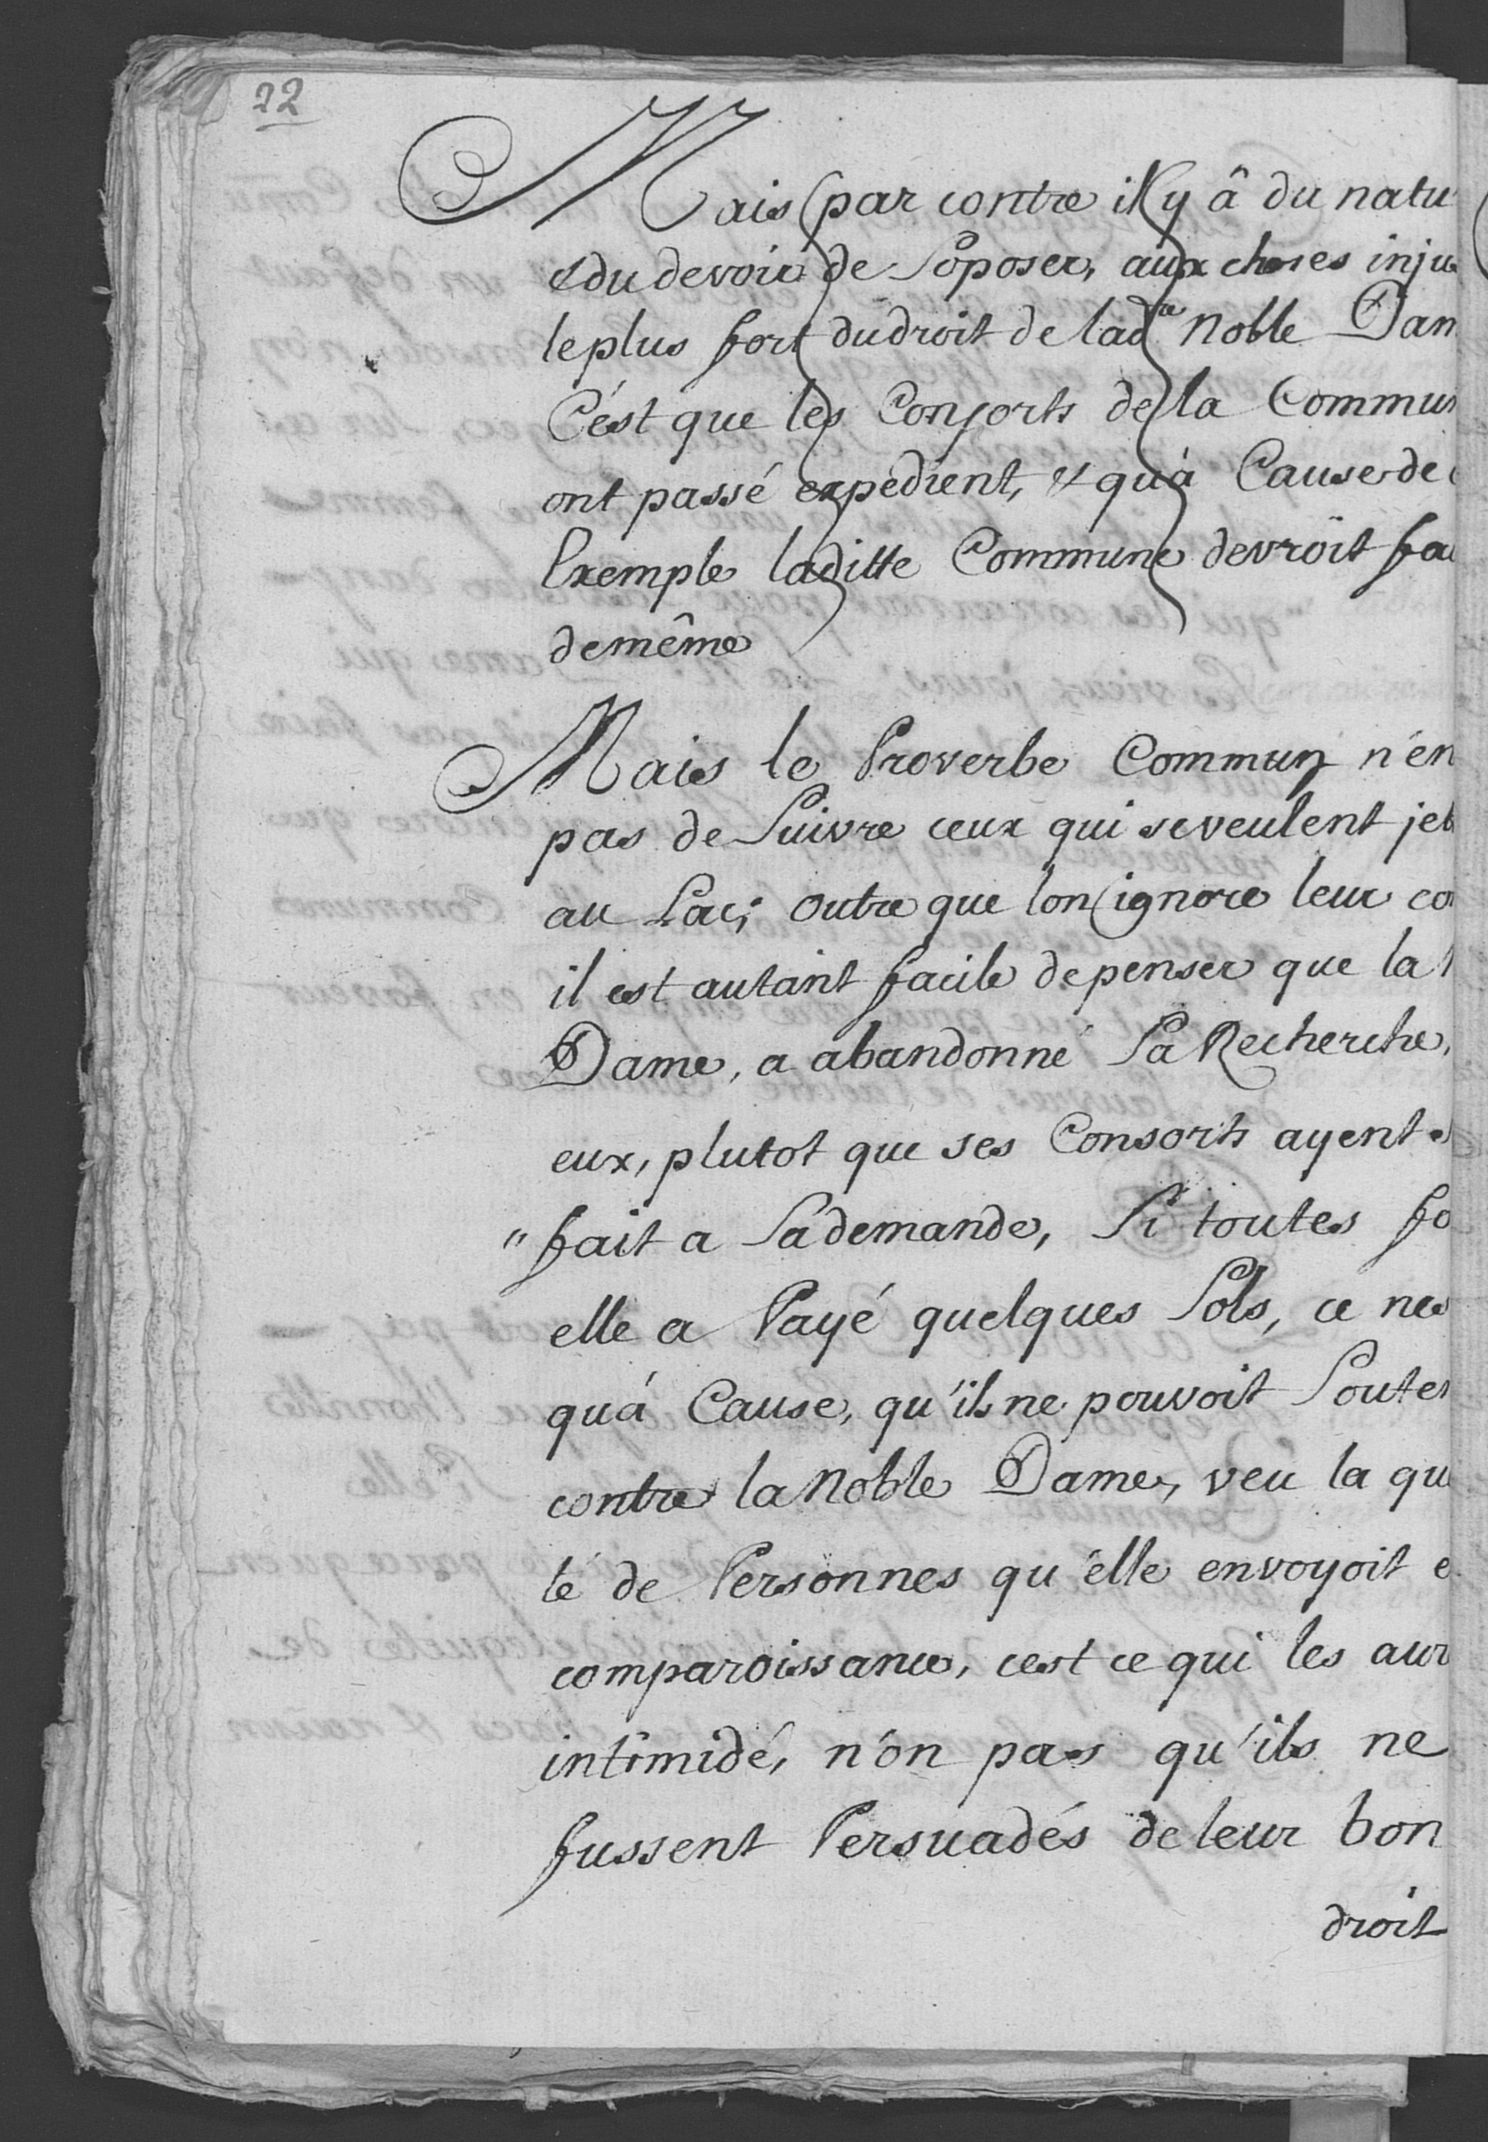 22
Mais par contre il y â du natu
& du devoir de Soposer, aux choses inju
le plus fort du droit de lad.te Noble Dam
C'ést que les Consorts de la Commu
ont passé expedient, & qu'à Cause de
l'exemple laditte Commune devroit fai
de même
Mais le Proverbe Commun n'en
pas de Suivre ceux qui se veulent jet
au Lac; outre que lon ignore leur co
il est autant facile de penser que la
Dame, a abandonné Sa Recherche,
eux, plutot que ses Consorts ayent
" fait a Sa demande, Si toutes fo
elle a Payé quelques Sols, ce nes
quá Cause, qu'ils ne pouvoit Souten
contre la Noble Dame, veu la qu
té de Personnes qu'elle envoyoit e
comparoissance, cest ce qui les aur
intimidé, n'on pas qu'ils ne
fussent Persuadés de leur bon
droit